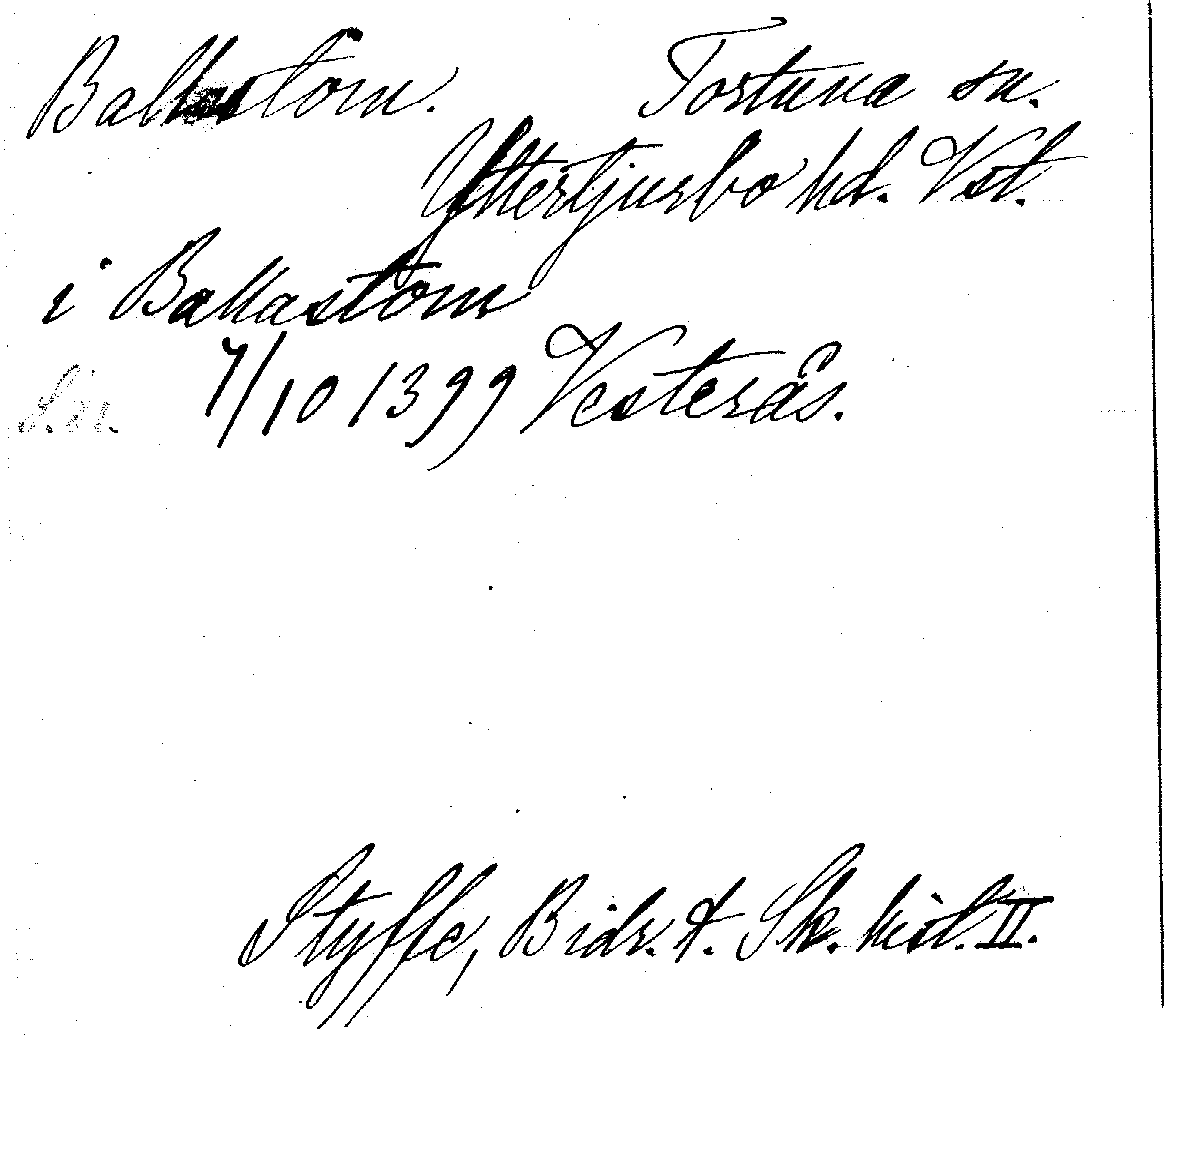 Ballastom. Tortuna sn.
Yttertjurbo hd. Vstl.
i Ballastom
7/10 1399 Vesterås.
Styffe, Bidr. t. Sk. hist. II.